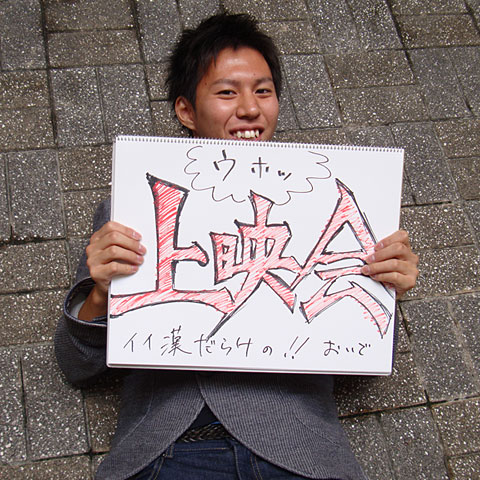 ウホッ
上映会
イイ漢だらけの!! おいで